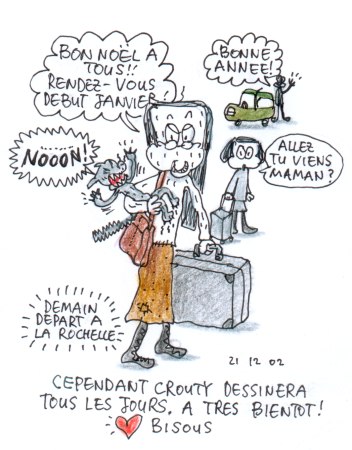 BON NOËL A
TOUS!!
RENDEZ-VOUS
DEBUT JANVIER!
BONNE
ANNEE!
NOOON!
ALLEZ
TU VIENS
MAMAN?
DEMAIN
DEPART A
LA ROCHELLE
21 12 02
CEPENDANT CROUTY DESSINERA
TOUS LES JOURS. A TRES BIENTOT!
BISOUS